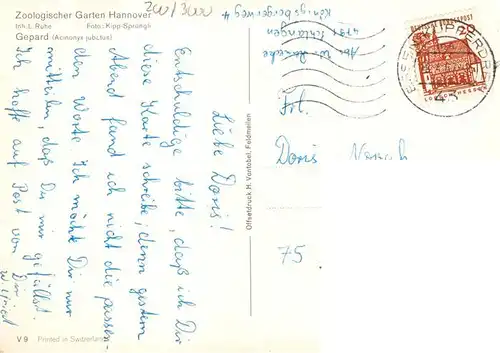 Zoologischer Garten Hannover
Inh. L. Ruhe Foto: Kipp-Sprüngli
Gepard (Acinonyx jubatus)
200/3000
Liebe Doris!
Entschuldige bitte, daß ich Dir
diese Karte schreibe, denn gestern
Abend fand ich nicht die passen-
den Worte. Ich möchte Dir nur
mitteilen, daß Du mir gefällst.
Ich hoffe auf Post von Dir
Wilfried
V 9 Printed in Switzerland
Offsetdruck H. Vontobel, Feldmeilen
Abs. W.
Königsberger weg 4
DEUTSCHE BUNDESPOST
Frl.
Doris
75